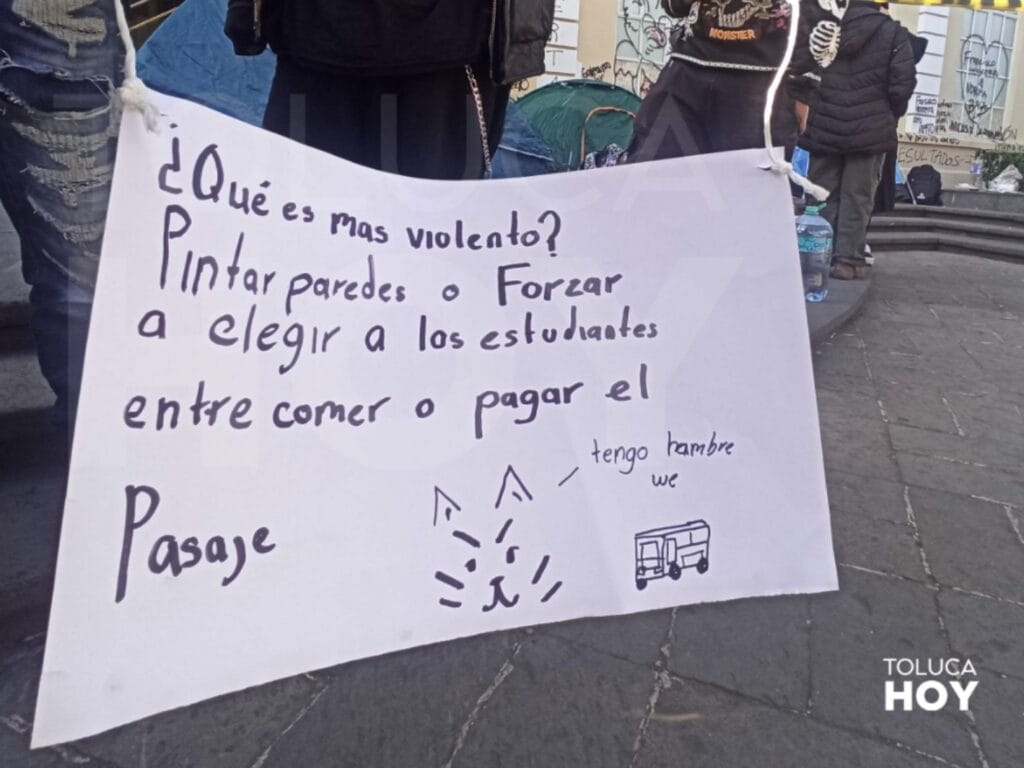 ¿Qué es mas violento?
Pintar paredes o Forzar
a elegir a los estudiantes
entre comer o pagar el
Pasaje
tengo hambre
we
MONSTER
RESULTADOS
TOLUCA
HOY
TOLUCA
HOY